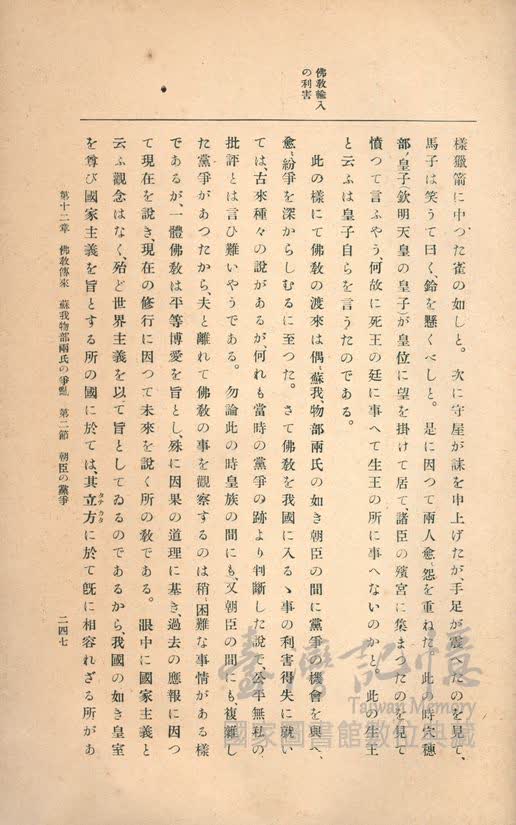 佛敎輸入
の利害
樣獵箭に中つた雀の如しと。次に守屋が誄を申上げたが、手足が震へたのを見て、
馬子は笑うて曰く、鈴を懸くべしと。是に因つて兩人愈〻怨を重ねた。此の時穴穗
部ノ皇子(欽明天皇の皇子)が皇位に望を掛けて居て、諸臣の殯宮に集まつたのを見て
憤つて言ふやう、何故に死王の廷に事へて生王の所に事へないのかと。此の生王
と云ふは皇子自らを言うたのである。
此の樣にて佛敎の渡來は偶〻蘇我、物部兩氏の如き朝臣の間に黨爭の機會を與へ、
愈〻紛爭を深からしむるに至つた。さて佛敎を我國に入るゝ事の利害得失に就い
ては、古來種々の說があるが、何れも當時の黨爭の跡より判斷した說で、公平無私の
批評とは言ひ難いやうである。勿論此の時皇族の間にも、又朝臣の間にも複雜し
た黨爭があつたから、夫と離れて佛敎の事を觀察するのは稍〻困難な事情がある樣
であるが、一體佛敎は平等博愛を旨とし、殊に因果の道理に基き、過去の應報に因つ
て現在を說き、現在の修行に因つて未來を說く所の敎である。眼中に國家主義と
云ふ觀念はなく、殆ど世界主義を以て旨としてゐるのであるから、我國の如き皇室
を尊び國家主義を旨とする所の國に於ては、其立方に於て旣に相容れざる所があ
タテカタ
第十二章 佛敎傳來 蘇我物部兩氏の爭 第二節 朝臣の黨爭
二四七
臺灣記憶
Taiwan Memory
國家圖書館數位典藏